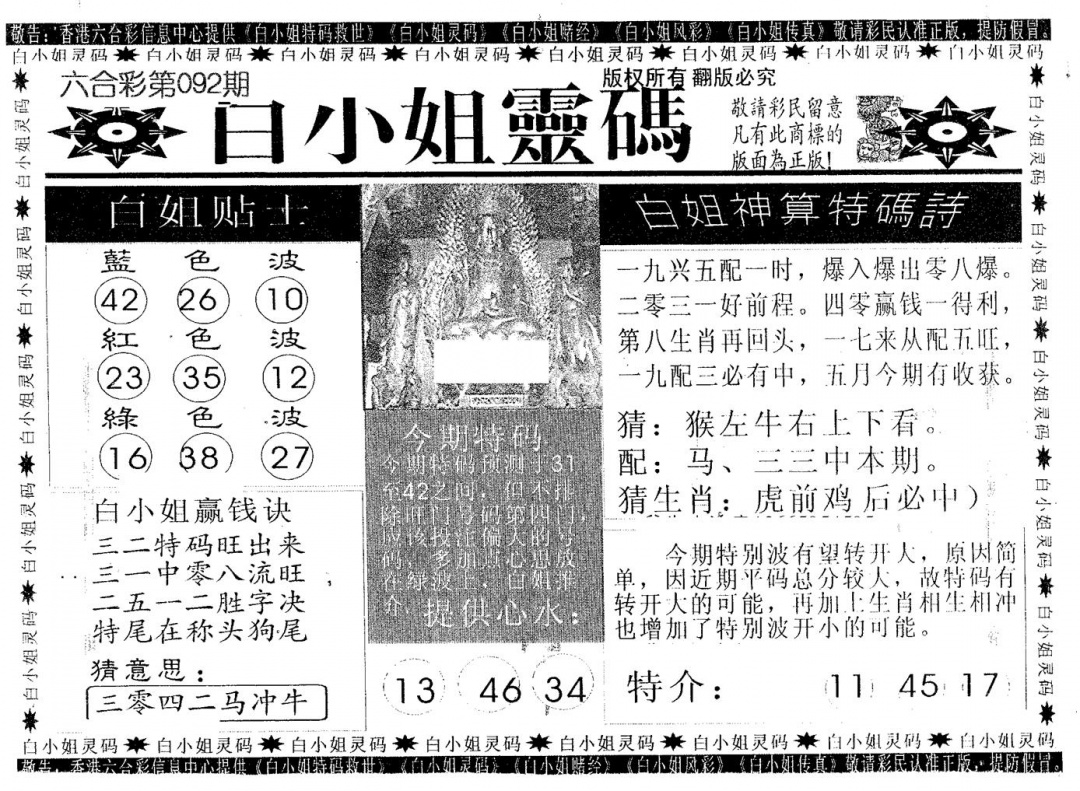 敬告：香港六合彩信息中心提供《白小姐特码救世》《白小姐灵码》《白小姐赌经》《白小姐风彩》《白小姐传真》敬请彩民认准正版，提防假冒。
白小姐灵码 白小姐灵码 白小姐灵码 白小姐灵码 白小姐灵码 白小姐灵码 白小姐灵码 白小姐灵码
六合彩第092期
版权所有 翻版必究
白小姐靈碼
敬請彩民留意
凡有此商標的
版面為正版！
白姐贴士
藍 色 波
42 26 10
紅 色 波
23 35 12
綠 色 波
16 38 27
白小姐赢钱诀
三二特码旺出来
三一中零八流旺
二五一二胜字决
特尾在称头狗尾
猜意思：
三零四二马冲牛
今期特码
今期特码预测于31
至42之间，但不排
除旺门号码第四门，
应该投注偏大的号
码，多加点心思放
在绿波上，白姐推
介。
提供心水：
13 46 34
白姐神算特碼詩
一九兴五配一时，爆入爆出零八爆。
二零三一好前程。四零赢钱一得利，
第八生肖再回头，一七来从配五旺，
一九配三必有中，五月今期有收获。
猜：猴左牛右上下看。
配：马、三三中本期。
猜生肖：虎前鸡后必中）
今期特别波有望转开人，原因简
单，因近期平码总分较大，故特码有
转开大的可能，再加上生肖相生相冲
也增加了特别波开小的可能。
特介： 11 45 17
白小姐灵码 白小姐灵码 白小姐灵码 白小姐灵码 白小姐灵码
白小姐灵码 白小姐灵码 白小姐灵码 白小姐灵码 白小姐灵码
白小姐灵码 白小姐灵码 白小姐灵码 白小姐灵码 白小姐灵码 白小姐灵码 白小姐灵码 白小姐灵码
敬告：香港六合彩信息中心提供《白小姐特码救世》《白小姐灵码》《白小姐赌经》《白小姐风彩》《白小姐传真》敬请彩民认准正版，提防假冒。